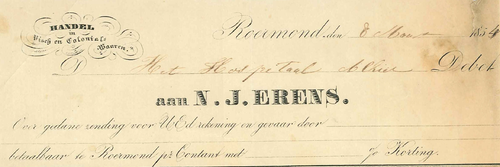 HANDEL
in
Visch en Coloniale
Waaren.
Roermond, den 8 Maart 1854
D Het Hospitaal Debet
aan N. J. ERENS.
Over gedane zending voor UEd rekening en gevaar door
betaalbaar te Roermond pr Contant met % Korting.